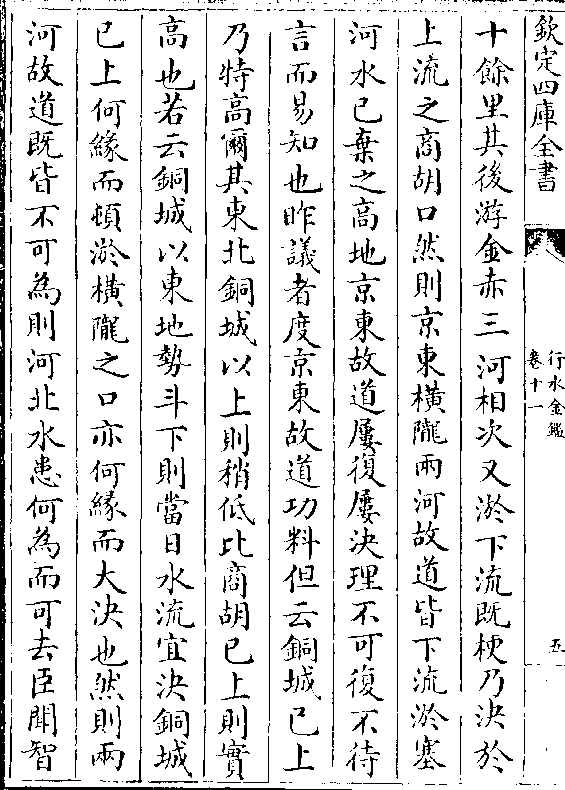 欽定四庫全書
行水金鑑
卷十一
五
十餘里其後游金赤三河相次又淤下流既梗乃決於
上流之商胡口然則京東橫隴兩河故道皆下流淤塞
河水已棄之高地京東故道屢復屢決理不可復不待
言而易知也昨議者度京東故道功料但云銅城已上
乃特高爾其東北銅城以上則稍低比商胡已上則實
高也若云銅城以東地勢斗下則當日水流宜決銅城
已上何緣而頓淤橫隴之口亦何緣而大決也然則兩
河故道既皆不可為則河北水患何為而可去臣聞智